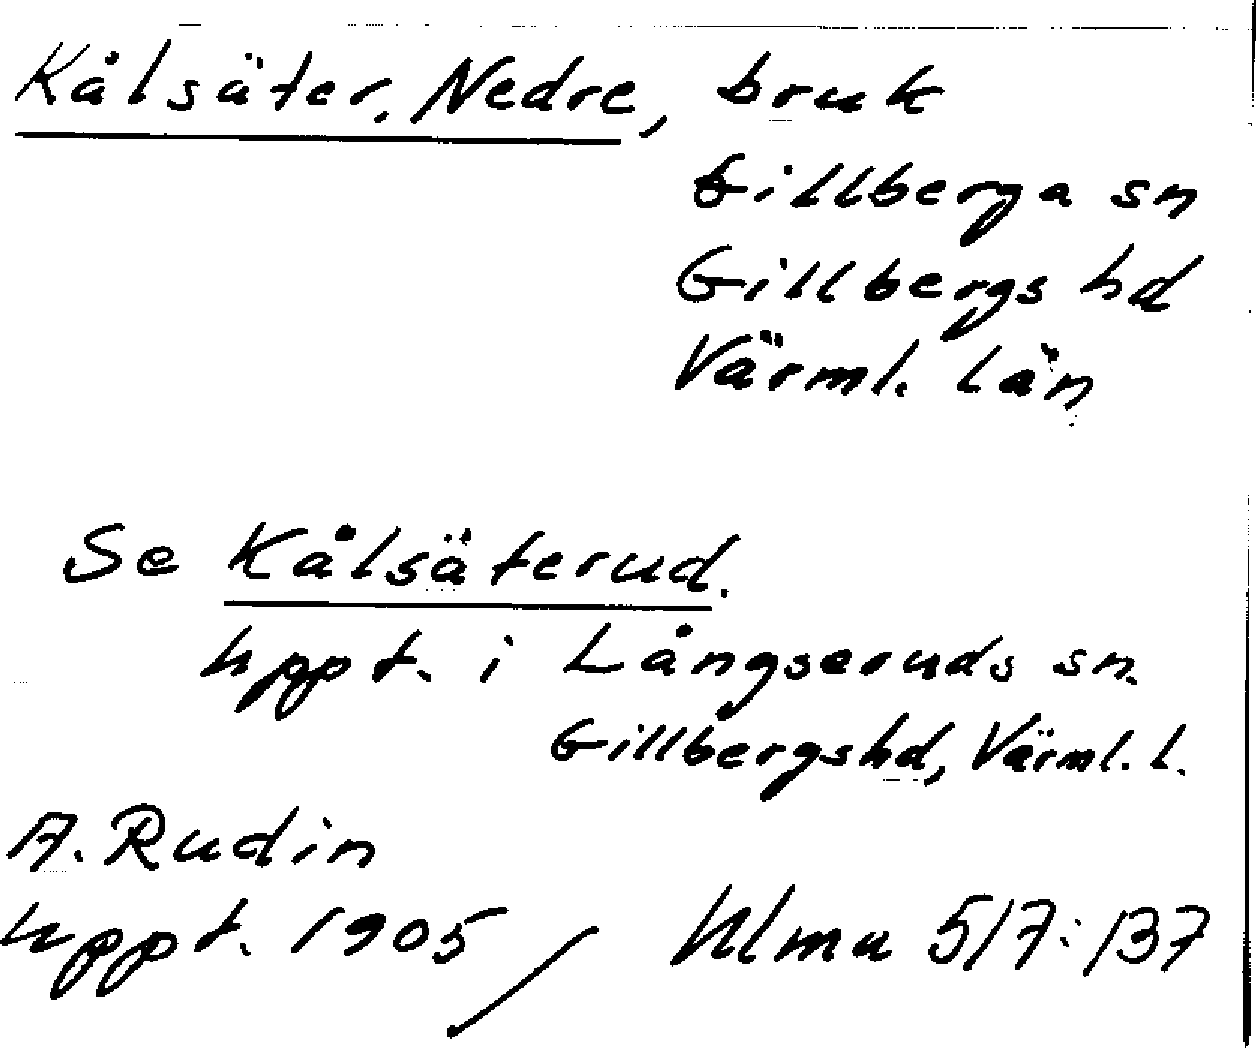 Kålsäter, Nedre, bruk
Gillberga sn
Gillbergs hd
Värml. län
Se Kålsäterud.
uppt. i Långseruds sn.
Gillbergshd, Värml. l.
A. Rudin
uppt. 1905 / Ulma 517:137